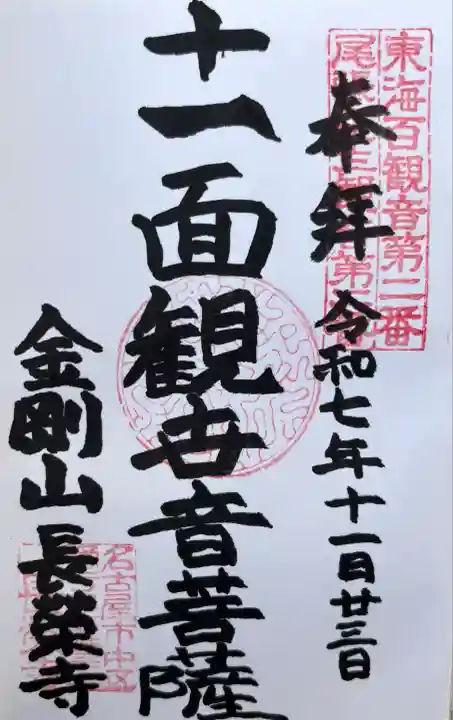 東海百観音第二番
尾張三十三観音第二番
奉拝 令和七年十一月廿三日
十一面観世音菩薩
金剛山 長榮寺
名古屋市中区